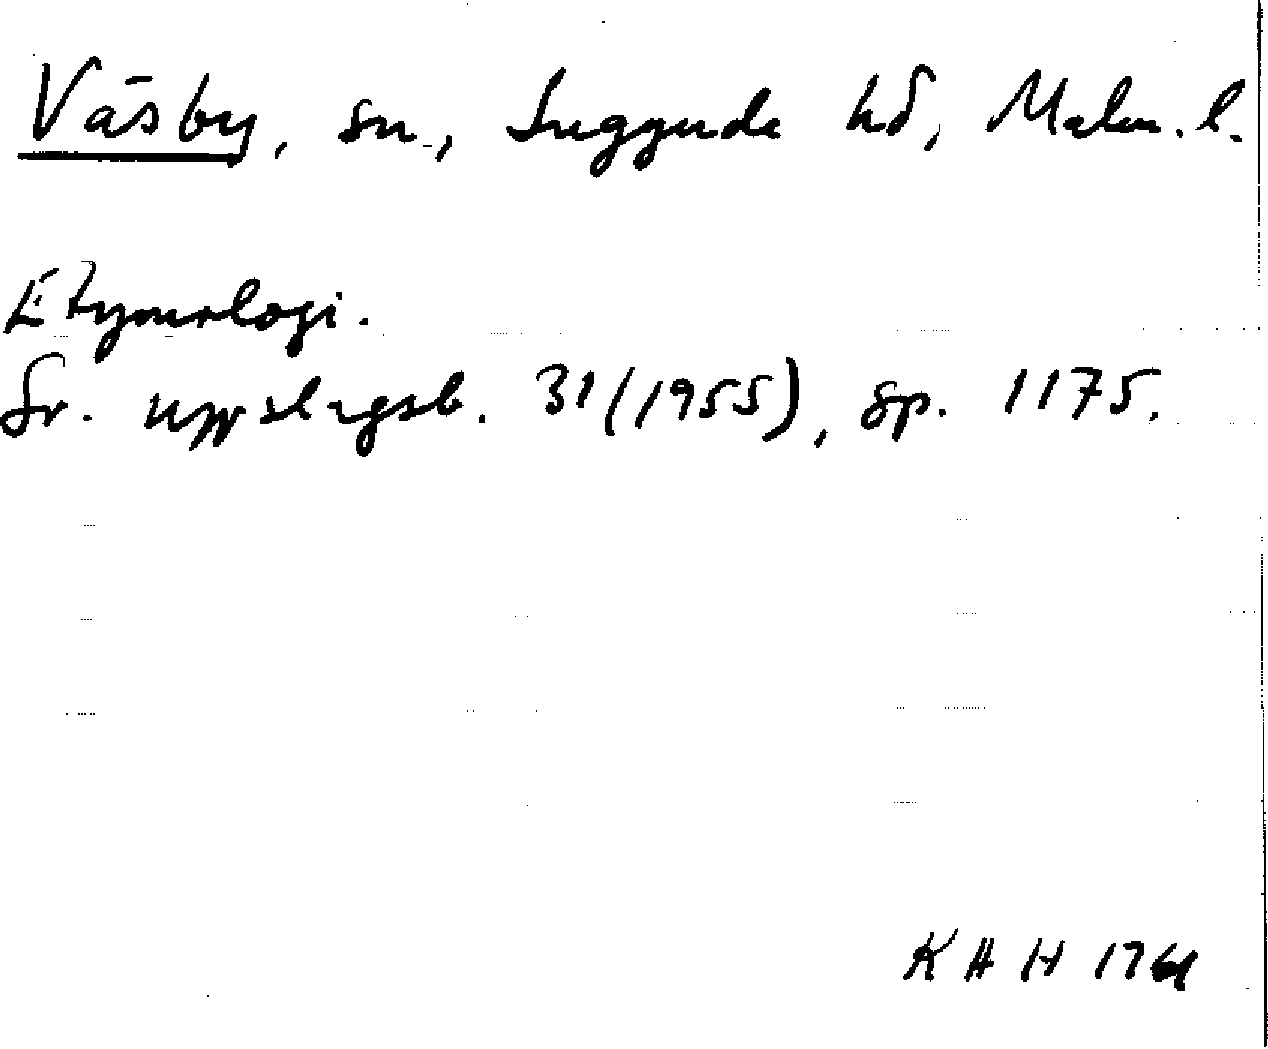 Väsby, sn., Luggude hd, Malm. l.
Etymologi.
Sv. uppslagsb. 31 (1955), sp. 1175.
KAH 1961